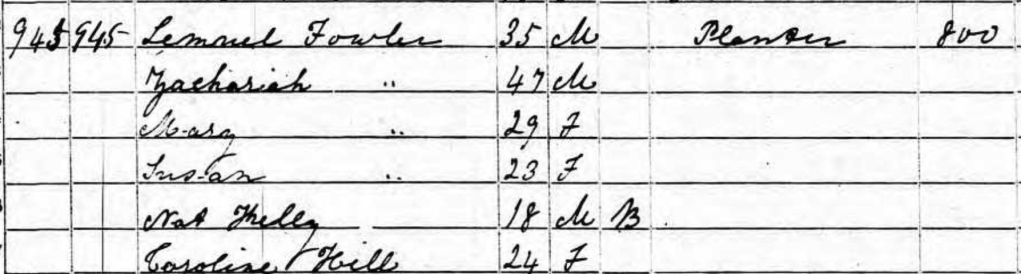 945 945 Lemuel Fowler 35 M Planter 800
Zachariah " 47 M
Mary " 29 F
Susan " 23 F
Nat 18 M B
Caroline Hill 24 F